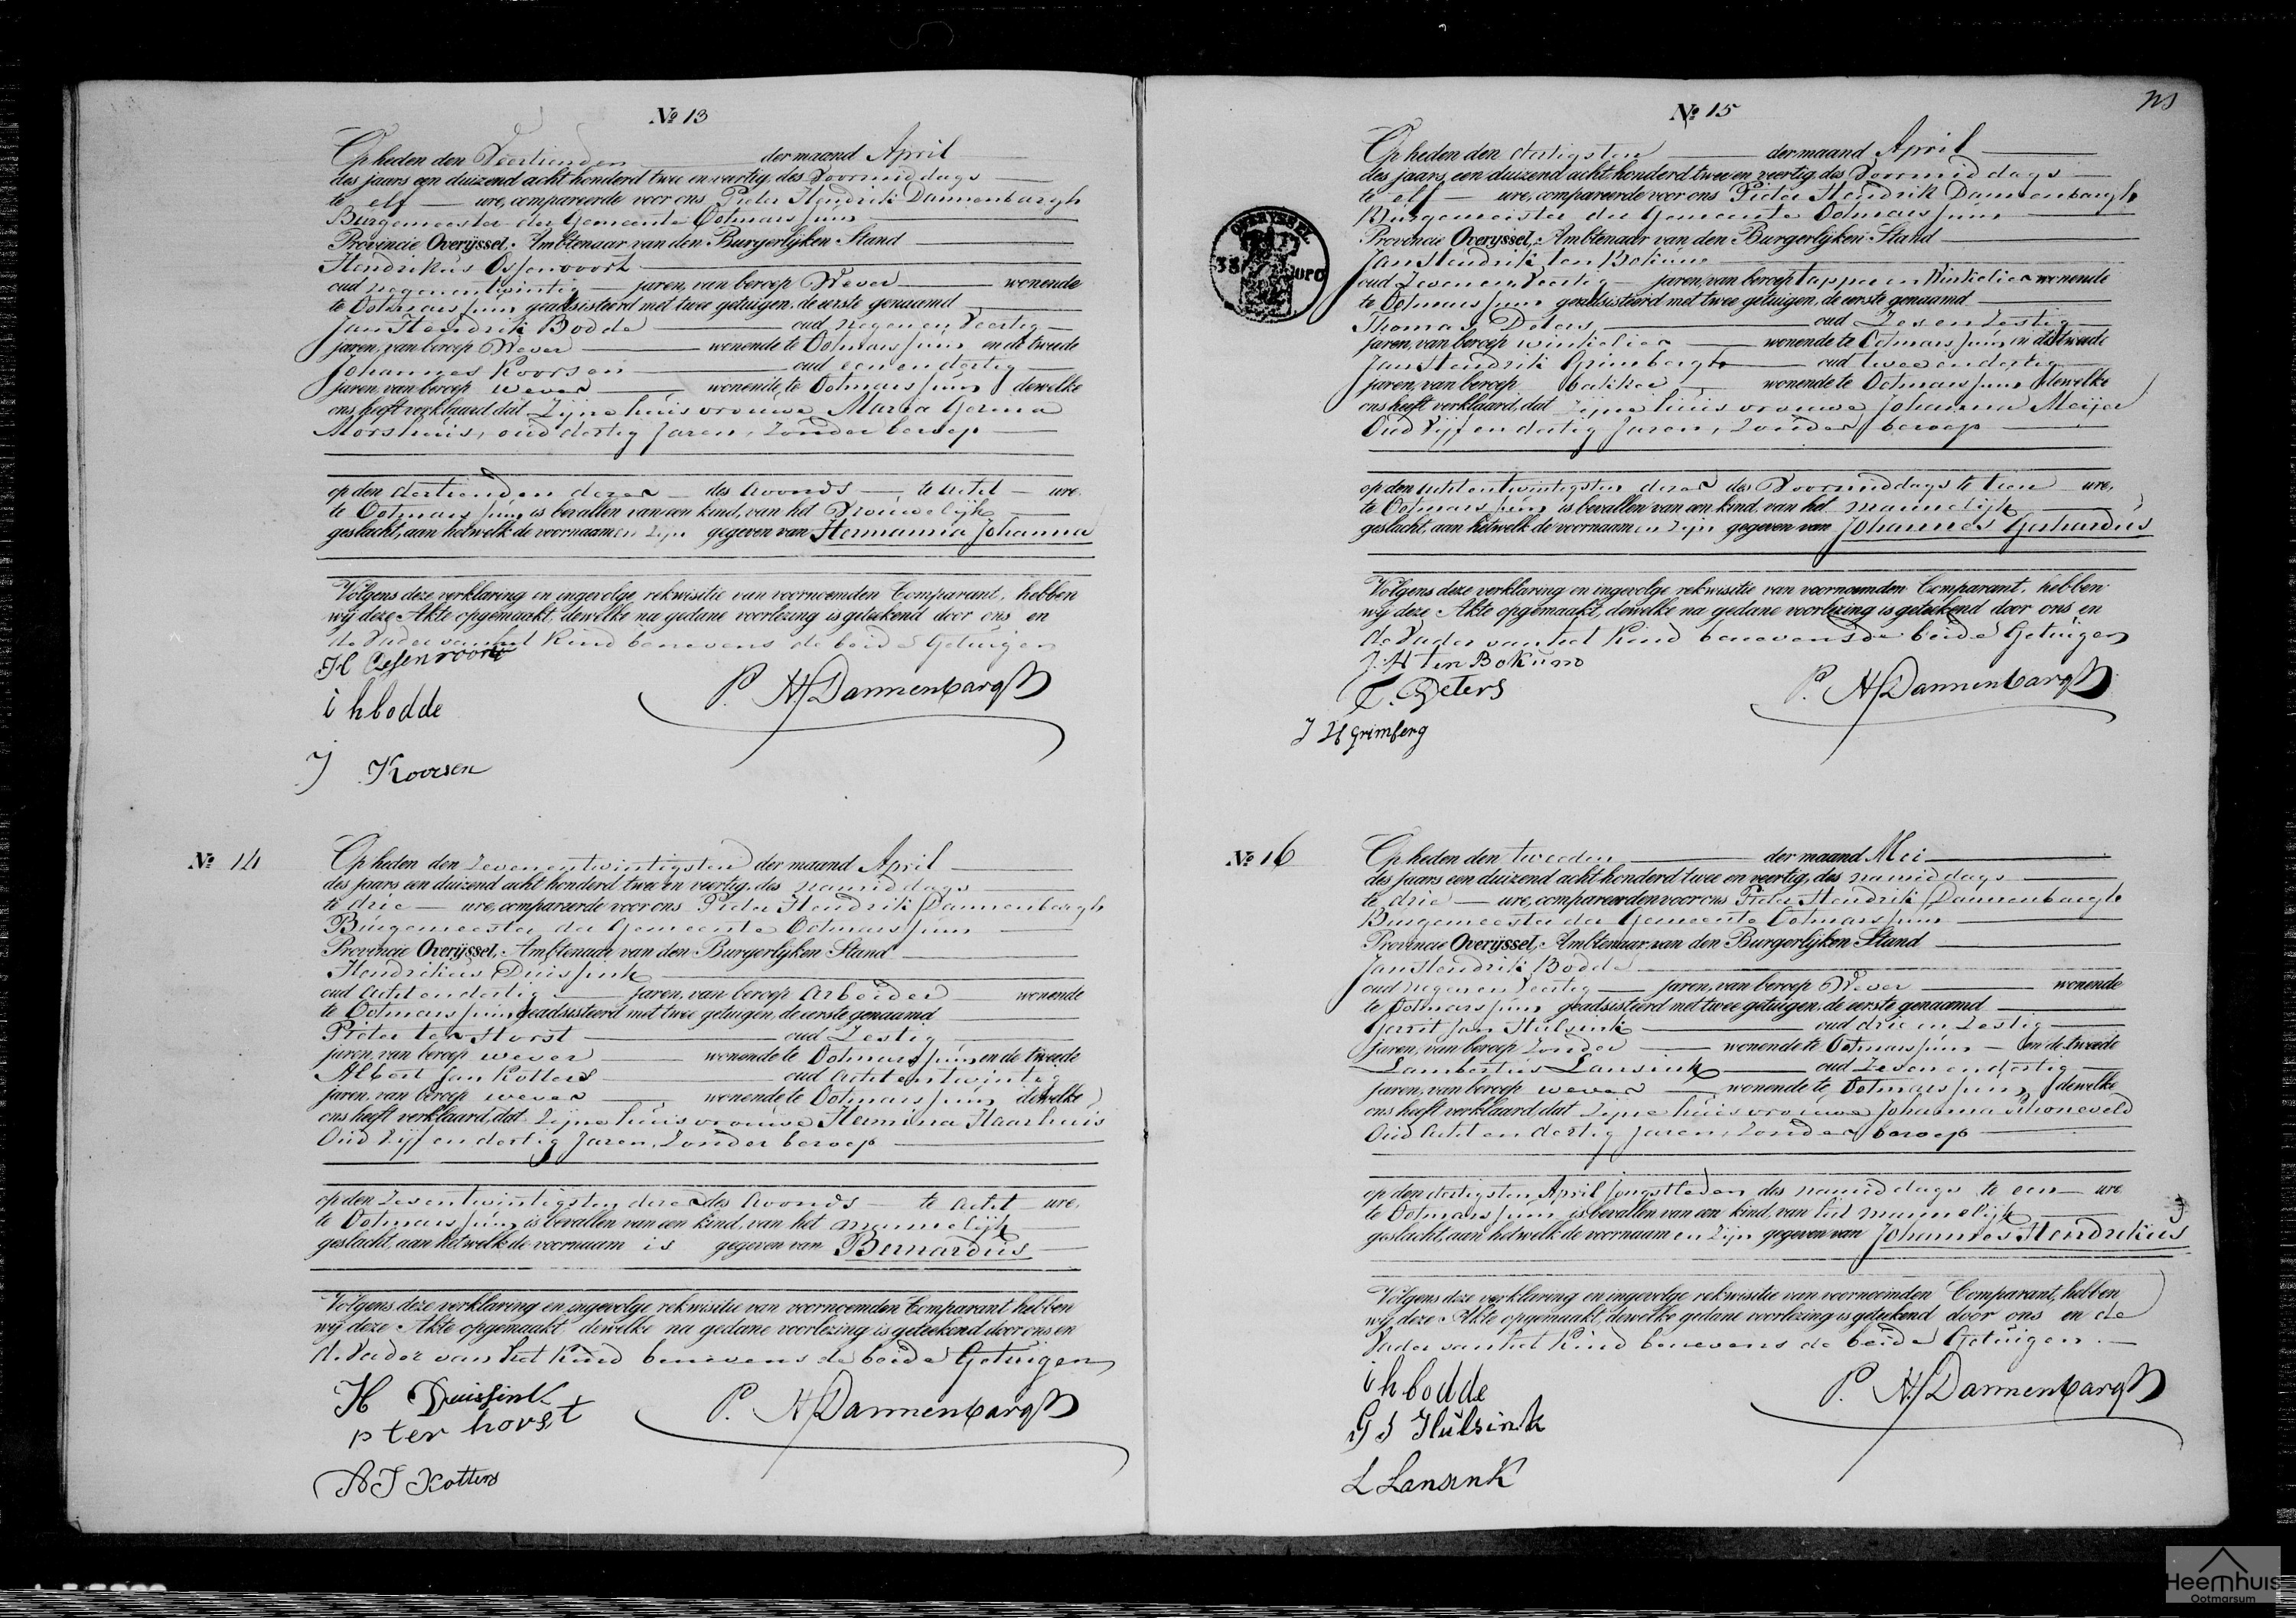 № 13
Op heden den Veertienden der maand April
des jaars een duizend acht honderd twee en veertig, des Voormiddags
te elf ure, compareerde voor ons Pieter Hendrik Dannenbargh
Burgemeester der Gemeente Ootmarssum
Provincie Overijssel, Ambtenaar van den Burgerlijken Stand
Hendrikus Ossenvoort
oud negenentwintig jaren, van beroep Wever wonende
te Ootmarssum geadsisteerd met twee getuigen, de eerste genaamd
Jan Hendrik Bodde oud negen en Veertig
jaren, van beroep Wever wonende te Ootmarssum en de tweede
Johannes Koorsen oud een en dertig
jaren, van beroep wever wonende te Ootmarssum dewelke
ons heeft verklaard, dat Zijne huisvrouwe Maria Gesina
Morshuis, oud dertig Jaren, Zonder beroep
op den dertienden dezer des Avonds te Acht ure,
te Ootmarssum is bevallen van een kind, van het Vrouwelijk
geslacht, aan hetwelk de voornaamen Zijn gegeven van Hermannia Johanna
Volgens deze verklaring en ingevolge rekwisitie van voornoemden Comparant, hebben
wij deze Akte opgemaakt, dewelke na gedane voorlezing is geteekend door ons en
de Vader van het Kind benevens de beide Getuigen
H Ossenvoort
i h bodde
P. H. Dannenbargh
J Koorsen
№ 14
Op heden den Zevenentwintigsten der maand April
des jaars een duizend acht honderd twee en veertig, des namiddags
te drie ure, compareerde voor ons Pieter Hendrik Dannenbargh
Burgemeester der Gemeente Ootmarssum
Provincie Overijssel, Ambtenaar van den Burgerlijken Stand
Hendrikus Duissink
oud Acht en dertig jaren, van beroep Arbeider wonende
te Ootmarssum geadsisteerd met twee getuigen, de eerste genaamd
Pieter ter Horst oud Zestig
jaren, van beroep wever wonende te Ootmarssum en de tweede
Albert Jan Kotters oud Acht entwintig
jaren, van beroep wever wonende te Ootmarssum dewelke
ons heeft verklaard, dat Zijne huisvrouwe Hermina Haarhuis
Oud Vijf en dertig Jaren, Zonder beroep
op den Zeventwintigsten dezer des Avonds te Acht ure,
te Ootmarssum is bevallen van een kind, van het mannelijk
geslacht, aan hetwelk de voornaam is gegeven van Bernardus
Volgens deze verklaring en ingevolge rekwisitie van voornoemden Comparant hebben
wij deze Akte opgemaakt dewelke na gedane voorlezing is geteekend door ons en
de Vader van het Kind benevens de beide Getuigen
H Duissink
P. H. Dannenbargh
p ter horst
A J Kotters
№ 15
Op heden den dertigsten der maand April
des jaars een duizend acht honderd twee en veertig, des Voormiddags
te elf ure, compareerde voor ons Pieter Hendrik Dannenbargh
Burgemeister der Gemeente Ootmarssum
Provincie Overijssel, Ambtenaar van den Burgerlijken Stand
OVERYSSEL
Jan Hendrik ten Bokum
oud Zeven en Veertig jaren, van beroep tapper en Winkelier wonende
te Ootmarssum geadsisteerd met twee getuigen, de eerste genaamd
Thomas Deters oud Zes en Zestig
jaren, van beroep winkelier wonende te Ootmarssum en de tweede
Jan Hendrik Grimbergh oud twee en dertig
jaren, van beroep bakker wonende te Ootmarssum dewelke
ons heeft verklaard, dat Zijne huisvrouwe Johanna Meijer
Oud Vijf en dertig Jaren, Zonder beroep
op den achtentwintigsten dezer des Voormiddags te tien ure,
te Ootmarssum is bevallen van een kind, van het mannelijk
geslacht, aan hetwelk de voornaamen Zijn gegeven van Johannes Gerhardus
Volgens deze verklaring en ingevolge rekwisitie van voornoemden Comparant, hebben
wij deze Akte opgemaakt, dewelke na gedane voorlezing is geteekend door ons en
de Vader van het Kind benevens de beide Getuigen
J. H ten Bokum
T. Deters
P. H. Dannenbargh
J H Grimberg
№ 16
Op heden den tweeden der maand Mei
des jaars een duizend acht honderd twee en veertig, des namiddags
te drie ure, compareerden voor ons Pieter Hendrik Dannenbargh
Burgemeester der Gemeente Ootmarssum
Provincie Overijssel, Ambtenaar van den Burgerlijken Stand
Jan Hendrik Bodde
oud negen en Veertig jaren, van beroep Wever wonende
te Ootmarssum geadsisteerd met twee getuigen, de eerste genaamd
Gerrit Jan Hulsink oud drie en Zestig
jaren, van beroep Zonder wonende te Ootmarssum en de tweede
Lambertus Lansink oud Zeven en dertig
jaren, van beroep wever wonende te Ootmarssum dewelke
ons heeft verklaard dat Zijne huisvrouwe Johanna Schoneveld
Oud Acht en dertig Jaren, Zonder beroep
op den dertigsten April Jongstleden des namiddags te een ure
te Ootmarssum is bevallen van een kind, van het mannelijk
geslacht, aan hetwelk de voornaamen Zijn gegeven van Johannes Hendrikus
Volgens deze verklaring en ingevolge rekwisitie van voornoemden Comparant, hebben
wij deze Akte opgemaakt, dewelke gedane voorlezing is geteekend door ons en de
Vader van het Kind benevens de beide Getuigen.
i h bodde
P. H. Dannenbargh
G J Hulsink
L Lansink
Heemhuis
Ootmarsum